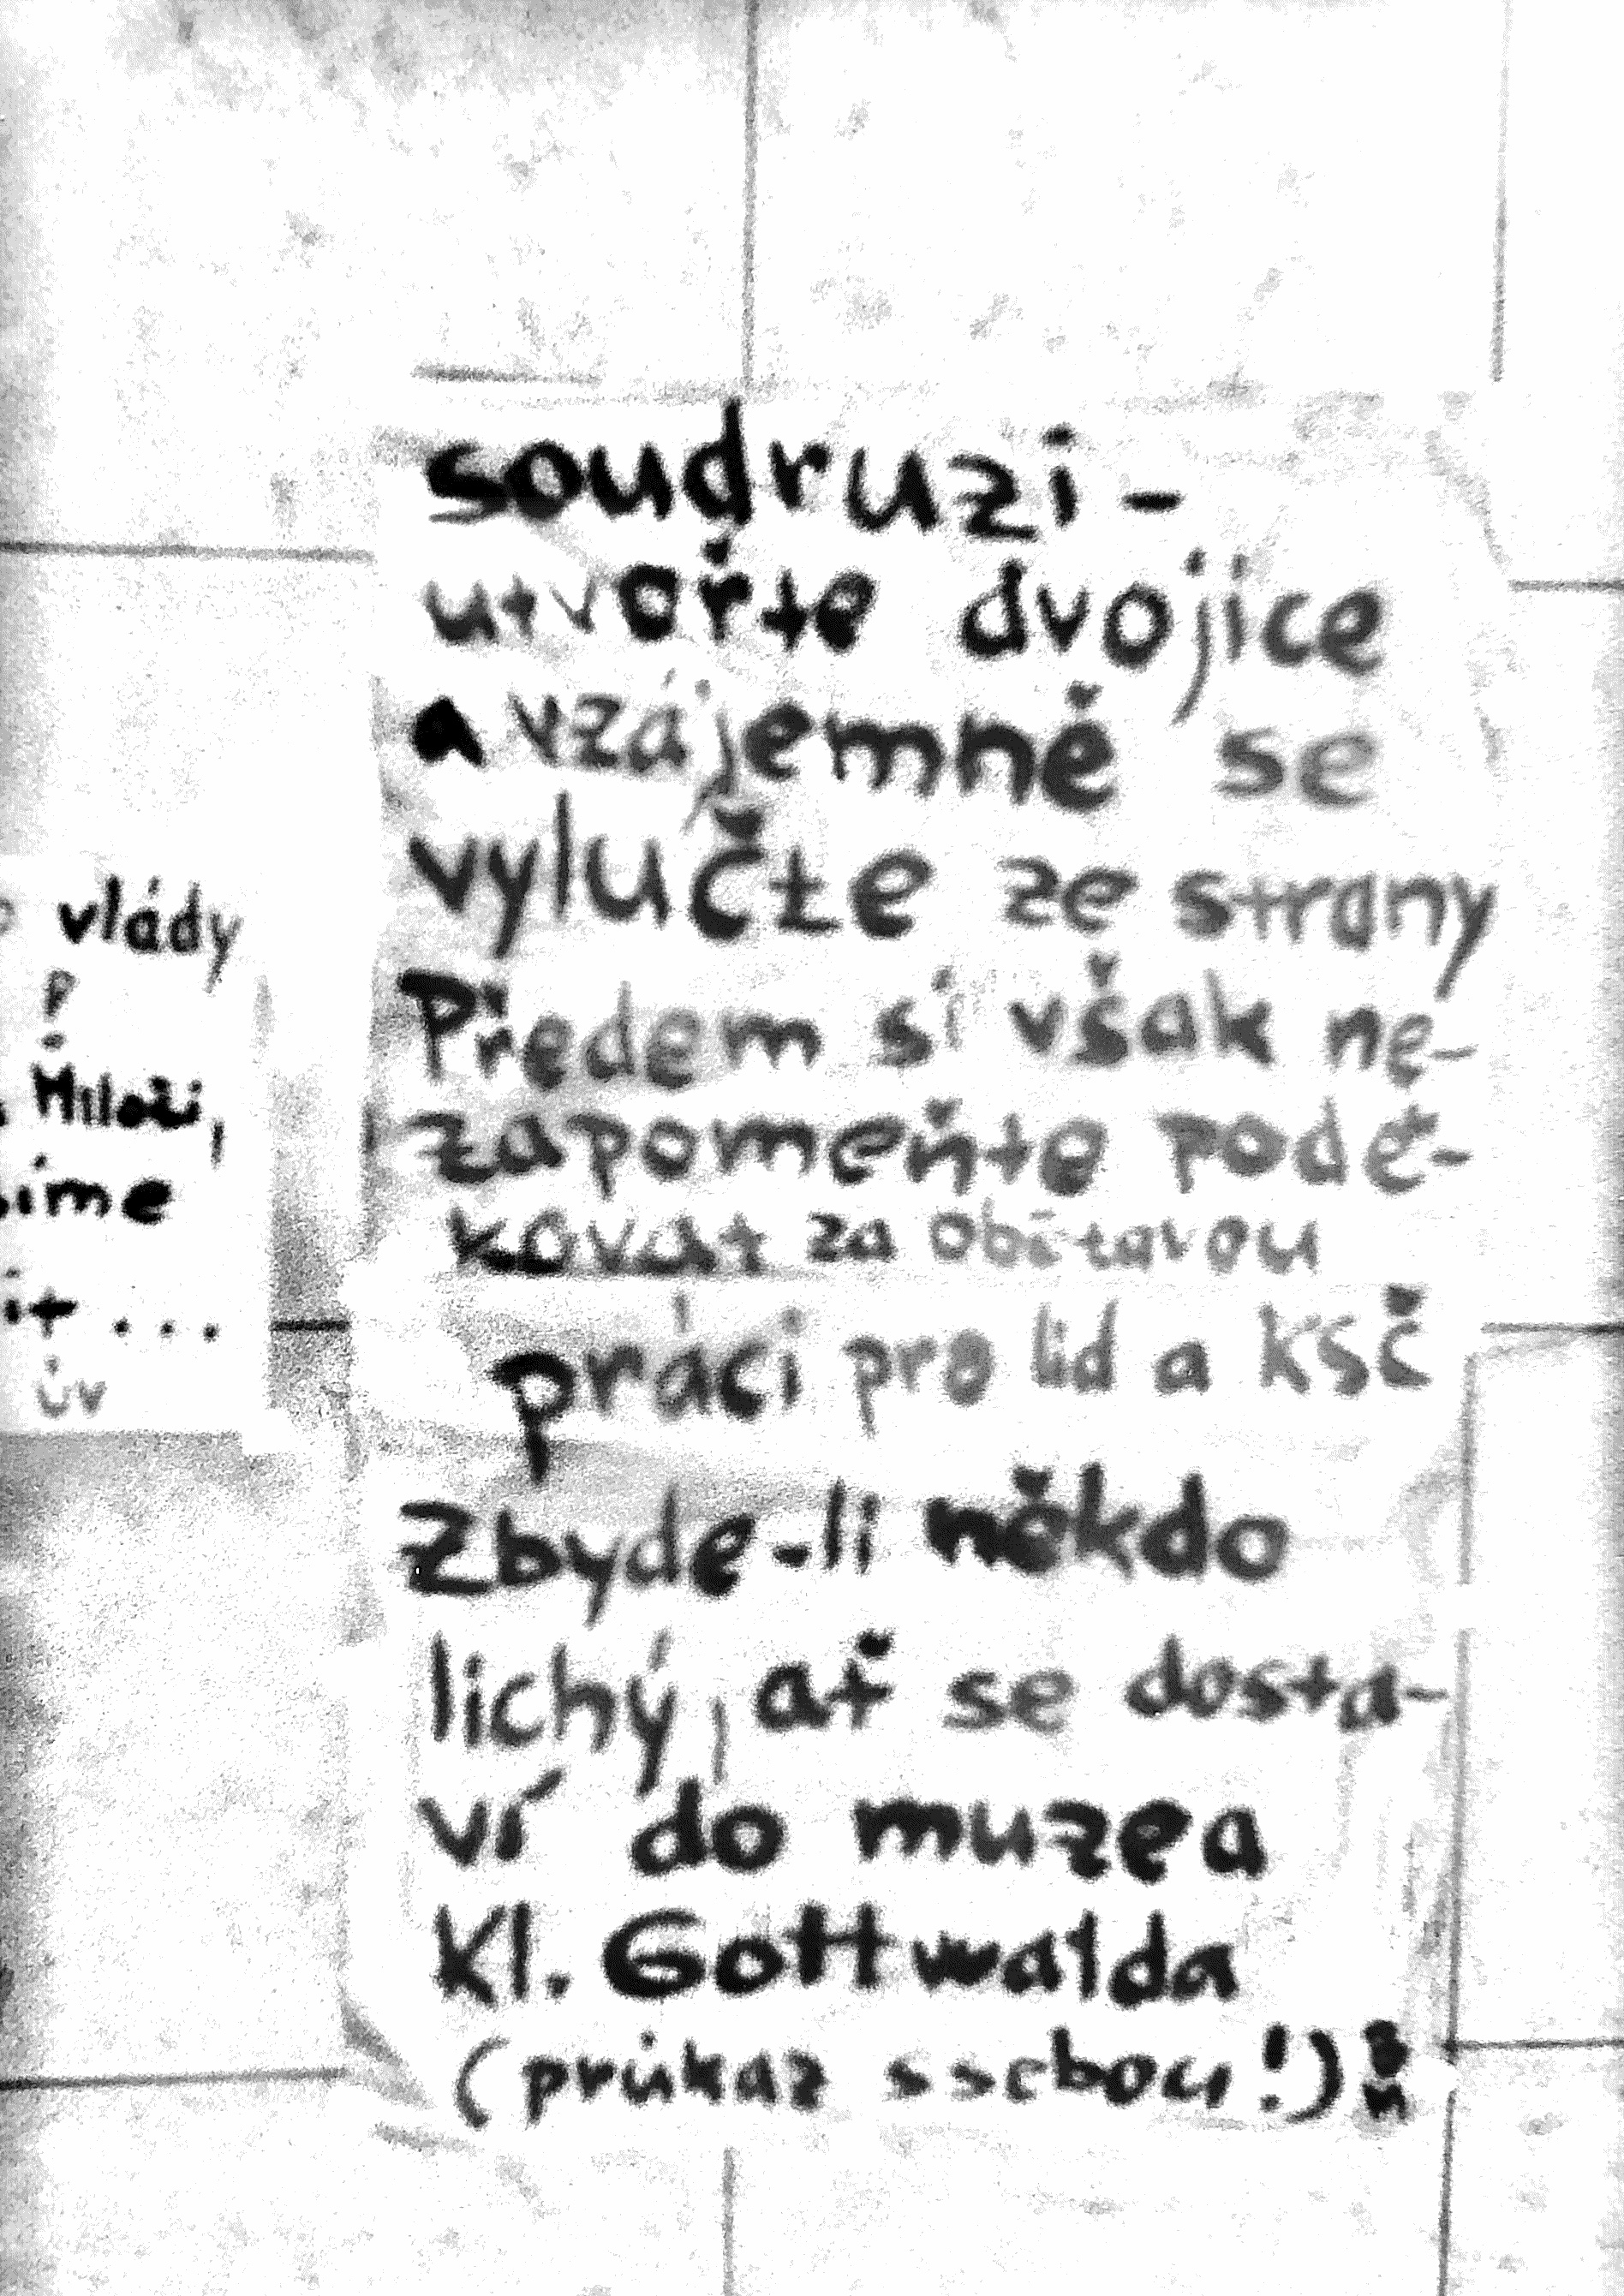 vlády
?
Miloši,
úv
soudruzi -
utvořte dvojice
a vzájemně se
vylučte ze strany
Předem si však ne-
zapomeňte podě-
kovat za obětavou
práci pro lid a KSČ
Zbyde-li někdo
lichý, ať se dosta-
ví do muzea
Kl. Gottwalda
(průkaz ssebou!)